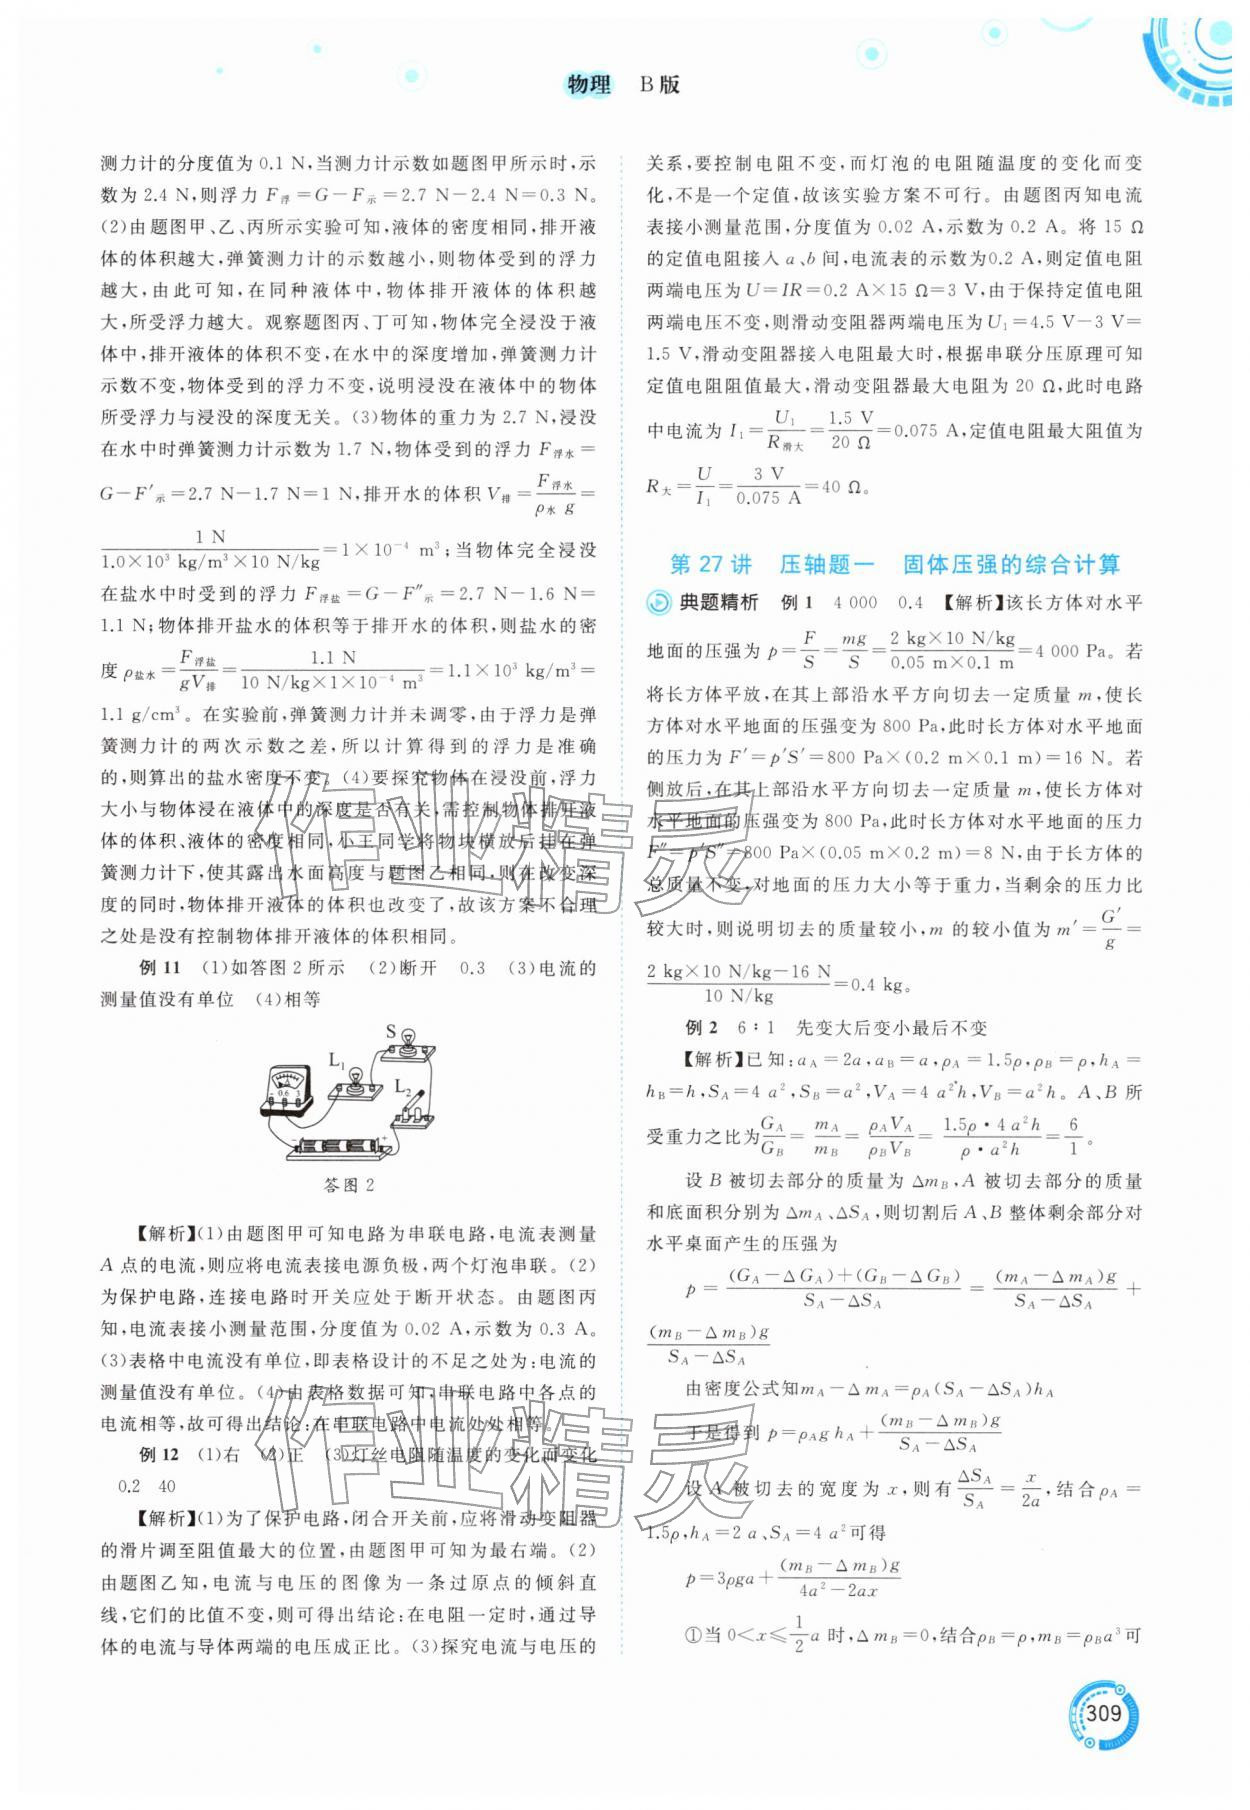 物理 B版
测力计的分度值为0.1 N,当测力计示数如题图甲所示时,示
数为2.4 N,则浮力F浮=G-F示=2.7 N-2.4 N=0.3 N。
(2)由题图甲、乙、丙所示实验可知,液体的密度相同,排开液
体的体积越大,弹簧测力计的示数越小,则物体受到的浮力
越大,由此可知,在同种液体中,物体排开液体的体积越
大,所受浮力越大。观察题图丙、丁可知,物体完全浸没于液
体中,排开液体的体积不变,在水中的深度增加,弹簧测力计
示数不变,物体受到的浮力不变,说明浸没在液体中的物体
所受浮力与浸没的深度无关。(3)物体的重力为2.7 N,浸没
在水中时弹簧测力计示数为1.7 N,物体受到的浮力F浮水=
G-F′示=2.7 N-1.7 N=1 N,排开水的体积V排=F浮水/ρ水 g=
1 N/1.0×10³ kg/m³×10 N/kg=1×10⁻⁴ m³;当物体完全浸没
在盐水中时受到的浮力F浮盐=G-F″示=2.7 N-1.6 N=
1.1 N;物体排开盐水的体积等于排开水的体积,则盐水的密
度ρ盐水=F浮盐/gV排=1.1 N/10 N/kg×1×10⁻⁴ m³=1.1×10³ kg/m³=
1.1 g/cm³。在实验前,弹簧测力计并未调零,由于浮力是弹
簧测力计的两次示数之差,所以计算得到的浮力是准确
的,则算出的盐水密度不变。(4)要探究物体在浸没前,浮力
大小与物体浸在液体中的深度是否有关,需控制物体排开液
体的体积、液体的密度相同,小王同学将物块横放后挂在弹
簧测力计下,使其露出水面高度与题图乙相同,则在改变深
度的同时,物体排开液体的体积也改变了,故该方案不合理
之处是没有控制物体排开液体的体积相同。
例11 (1)如答图2所示 (2)断开 0.3 (3)电流的
测量值没有单位 (4)相等
S
L₁
L₂
- 0.6 3
- +
答图2
【解析】(1)由题图甲可知电路为串联电路,电流表测量
A点的电流,则应将电流表接电源负极,两个灯泡串联。(2)
为保护电路,连接电路时开关应处于断开状态。由题图丙
知,电流表接小测量范围,分度值为0.02 A,示数为0.3 A。
(3)表格中电流没有单位,即表格设计的不足之处为:电流的
测量值没有单位。(4)由表格数据可知,串联电路中各点的
电流相等,故可得出结论:在串联电路中电流处处相等。
例12 (1)右 (2)正 (3)灯丝电阻随温度的变化而变化
0.2 40
【解析】(1)为了保护电路,闭合开关前,应将滑动变阻器
的滑片调至阻值最大的位置,由题图甲可知为最右端。(2)
由题图乙知,电流与电压的图像为一条过原点的倾斜直
线,它们的比值不变,则可得出结论:在电阻一定时,通过导
体的电流与导体两端的电压成正比。(3)探究电流与电压的
关系,要控制电阻不变,而灯泡的电阻随温度的变化而变
化,不是一个定值,故该实验方案不可行。由题图丙知电流
表接小测量范围,分度值为0.02 A,示数为0.2 A。将15 Ω
的定值电阻接入a、b间,电流表的示数为0.2 A,则定值电阻
两端电压为U=IR=0.2 A×15 Ω=3 V,由于保持定值电阻
两端电压不变,则滑动变阻器两端电压为U₁=4.5 V-3 V=
1.5 V,滑动变阻器接入电阻最大时,根据串联分压原理可知
定值电阻阻值最大,滑动变阻器最大电阻为20 Ω,此时电路
中电流为I₁=U₁/R滑大=1.5 V/20 Ω=0.075 A,定值电阻最大阻值为
R大=U/I₁=3 V/0.075 A=40 Ω。
第27讲 压轴题一 固体压强的综合计算
典题精析 例1 4 000 0.4 【解析】该长方体对水平
地面的压强为p=F/S=mg/S=2 kg×10 N/kg/0.05 m×0.1 m=4 000 Pa。若
将长方体平放,在其上部沿水平方向切去一定质量m,使长
方体对水平地面的压强变为800 Pa,此时长方体对水平地面
的压力为F′=p′S′=800 Pa×(0.2 m×0.1 m)=16 N。若
侧放后,在其上部沿水平方向切去一定质量m,使长方体对
水平地面的压强变为800 Pa,此时长方体对水平地面的压力
F″=p′S″=800 Pa×(0.05 m×0.2 m)=8 N,由于长方体的
总质量不变,对地面的压力大小等于重力,当剩余的压力比
较大时,则说明切去的质量较小,m的较小值为m′=G′/g=
2 kg×10 N/kg-16 N/10 N/kg=0.4 kg。
例2 6∶1 先变大后变小最后不变
【解析】已知:aA=2a,aB=a,ρA=1.5ρ,ρB=ρ,hA=
hB=h,SA=4 a²,SB=a²,VA=4 a²h,VB=a²h。A、B所
受重力之比为GA/GB=mA/mB=ρAVA/ρBVB=1.5ρ·4 a²h/ρ·a²h=6/1。
设B被切去部分的质量为ΔmB,A被切去部分的质量
和底面积分别为ΔmA、ΔSA,则切割后A、B整体剩余部分对
水平桌面产生的压强为
p=(GA-ΔGA)+(GB-ΔGB)/SA-ΔSA=(mA-ΔmA)g/SA-ΔSA+
(mB-ΔmB)g/SA-ΔSA
由密度公式知mA-ΔmA=ρA(SA-ΔSA)hA
于是得到p=ρAg hA+(mB-ΔmB)g/SA-ΔSA
设A被切去的宽度为x,则有ΔSA/SA=x/2a,结合ρA=
1.5ρ,hA=2 a、SA=4 a²可得
p=3ρga+(mB-ΔmB)g/4a²-2ax
①当0<x≤1/2a时,ΔmB=0,结合ρB=ρ,mB=ρBa³可
309
作业精灵
作业精灵